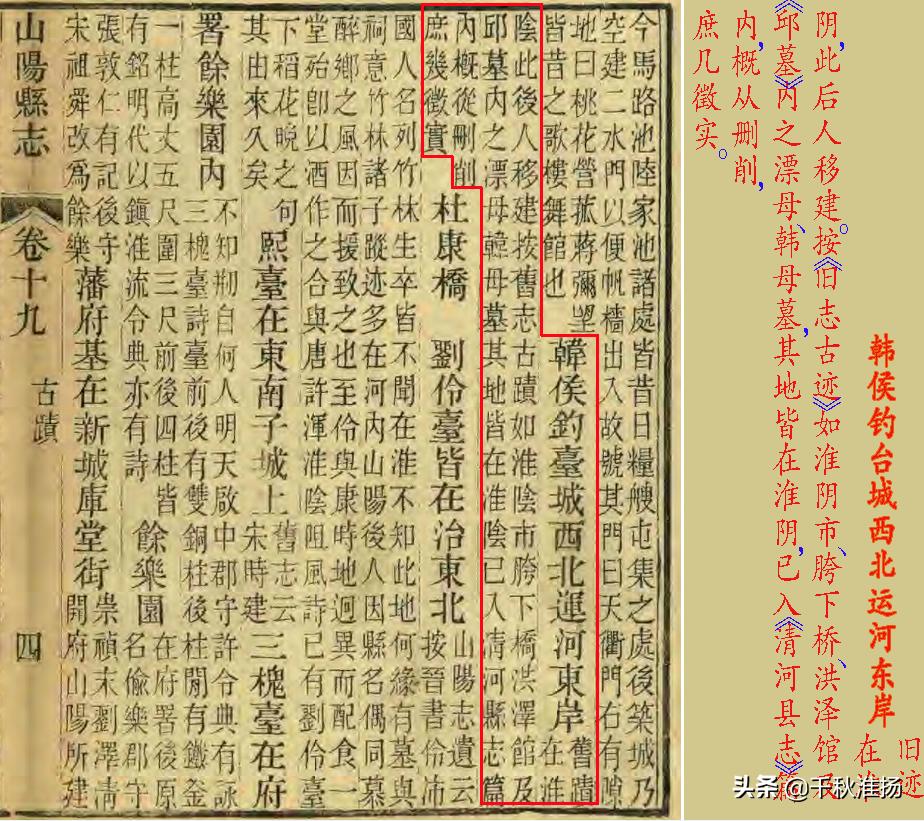 今馬路池陸家池諸處皆昔日糧艘屯集之處後築城乃
空建二水門以便帆檣出入故號其門曰天衢門右有隙
地曰桃花營菰蔣彌望
皆昔之歌樓舞館也
韓侯釣臺城西北運河東岸
舊蹟
在淮
陰此後人移建按舊志古蹟如淮陰市胯下橋洪澤館及
邱墓內之漂母韓母墓其地皆在淮陰已入清河縣志篇
內概從刪削
庶幾徵實
杜康橋 劉伶臺皆在治東北
山陽志遺云
按晉書伶沛
國人名列竹林生卒皆不聞在淮不知此地何緣有墓與
祠意竹林諸子蹤迹多在河內山陽後人因縣名偶同慕
醉鄉之風因而援致之也至伶與康時地迥異而配食一
堂殆卽以酒作之合與唐許渾淮陰阻風詩已有劉伶臺
下稻花晚之句
其由來久矣
熙臺在東南子城上
舊志云
宋時建
三槐臺在府
署餘樂園內
不知刱自何人明天啟中郡守許令典有詠
三槐臺詩臺前後有雙銅柱後柱閒有鐵釜
一柱高丈五尺圍三尺前後四柱皆
有銘明代以鎮淮流令典亦有詩
餘樂園
在府署後原
名偷樂郡守
張敦仁有記後守
宋祖舜改爲餘樂
藩府基在新城庫堂街
崇禎末劉澤清
開府山陽所建
山陽縣志 卷十九 古蹟 四
韩侯钓台城西北运河东岸
旧迹
在淮
阴，此后人移建。按《旧志古迹》如淮阴市、胯下桥、洪泽馆及
《邱墓》内之漂母、韩母墓，其地皆在淮阴，已入《清河县志》篇
内，概从删削，
庶几徵实。
头条 @千秋淮扬